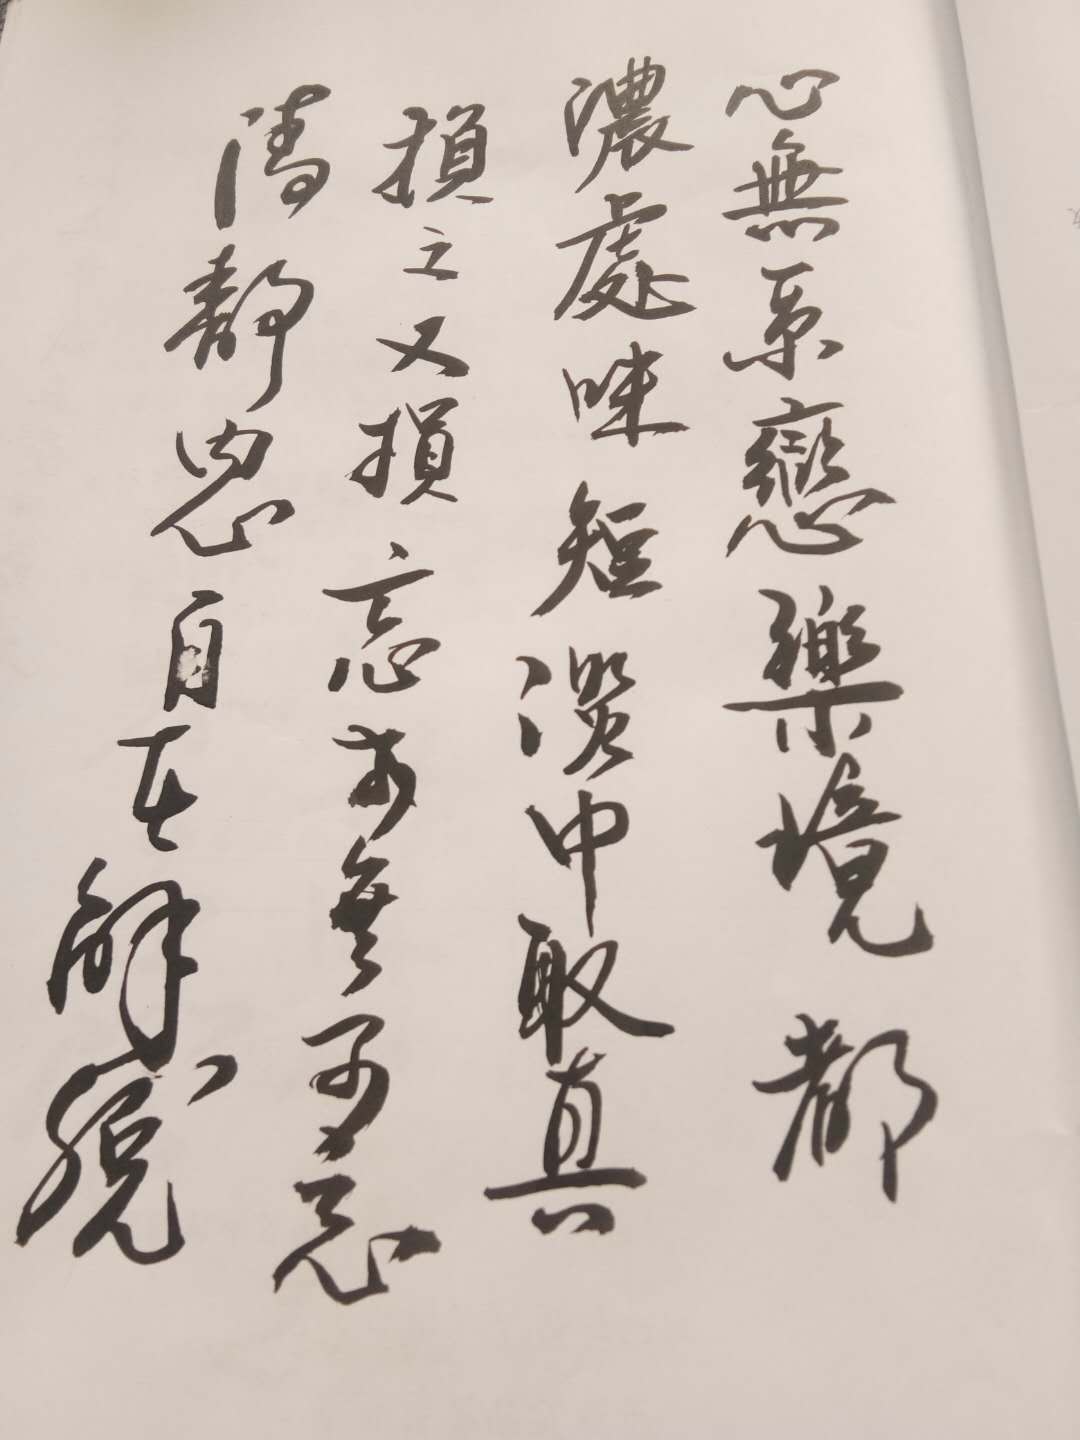 心無系戀樂境都
濃處味短淡中取真
損之又損忘無可忘
清靜內心自在解脫